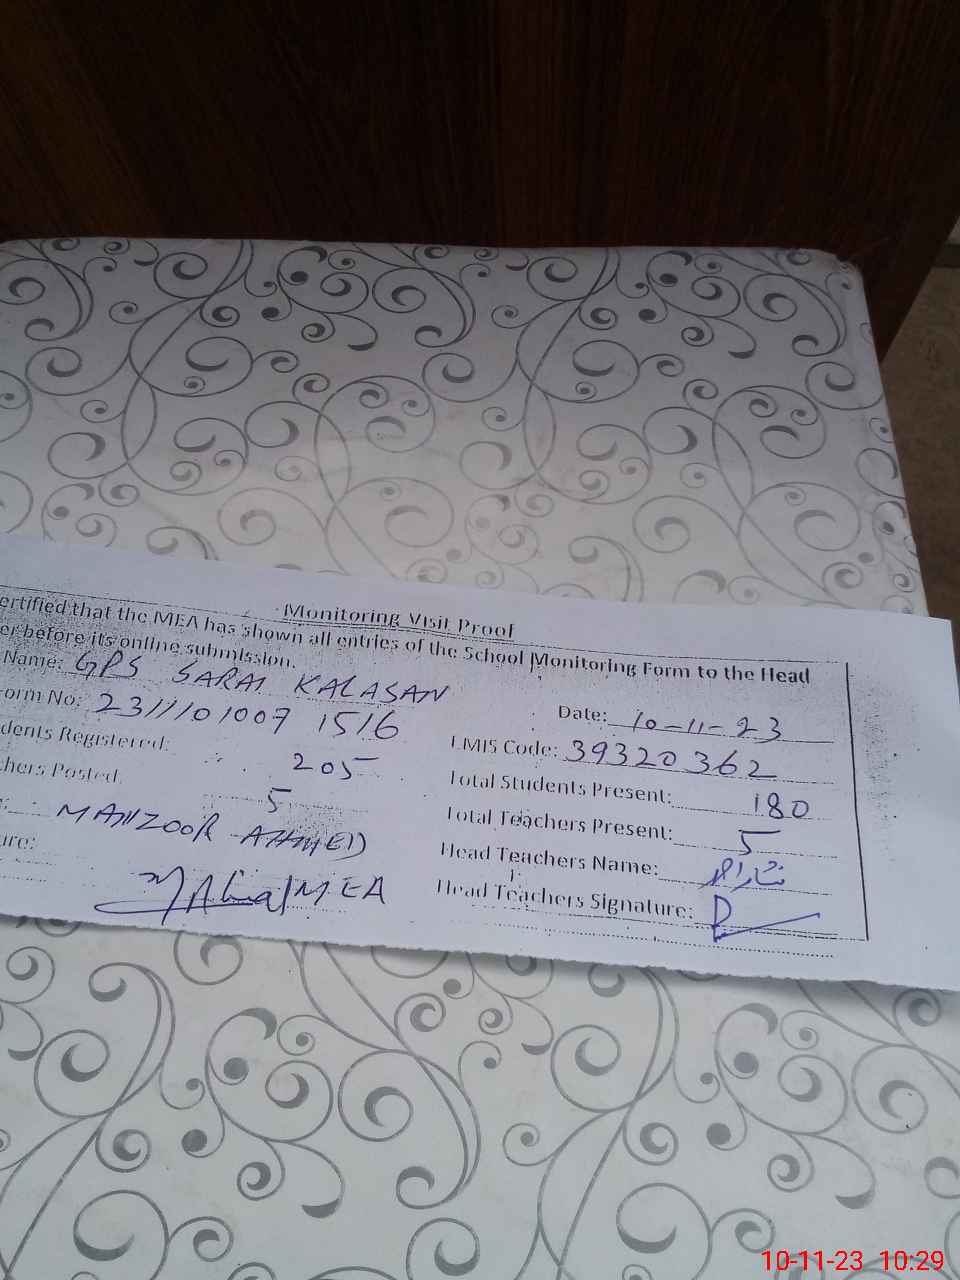 Monitoring Visit Proof
ertified that the MEA has shown all entries of the School Monitoring Form to the Head
er before its online submission.
Name: GPS SARAI KALASAN
Date: 10-11-23
orm No: 2311101007 1516
EMIS Code: 39320362
dents Registered: 205
Total Students Present: 180
chers Posted: 5
Total Teachers Present: 5
MANZOOR AHMED
Head Teachers Name:
ure: MEA
Head Teachers Signature:
10-11-23 10:29